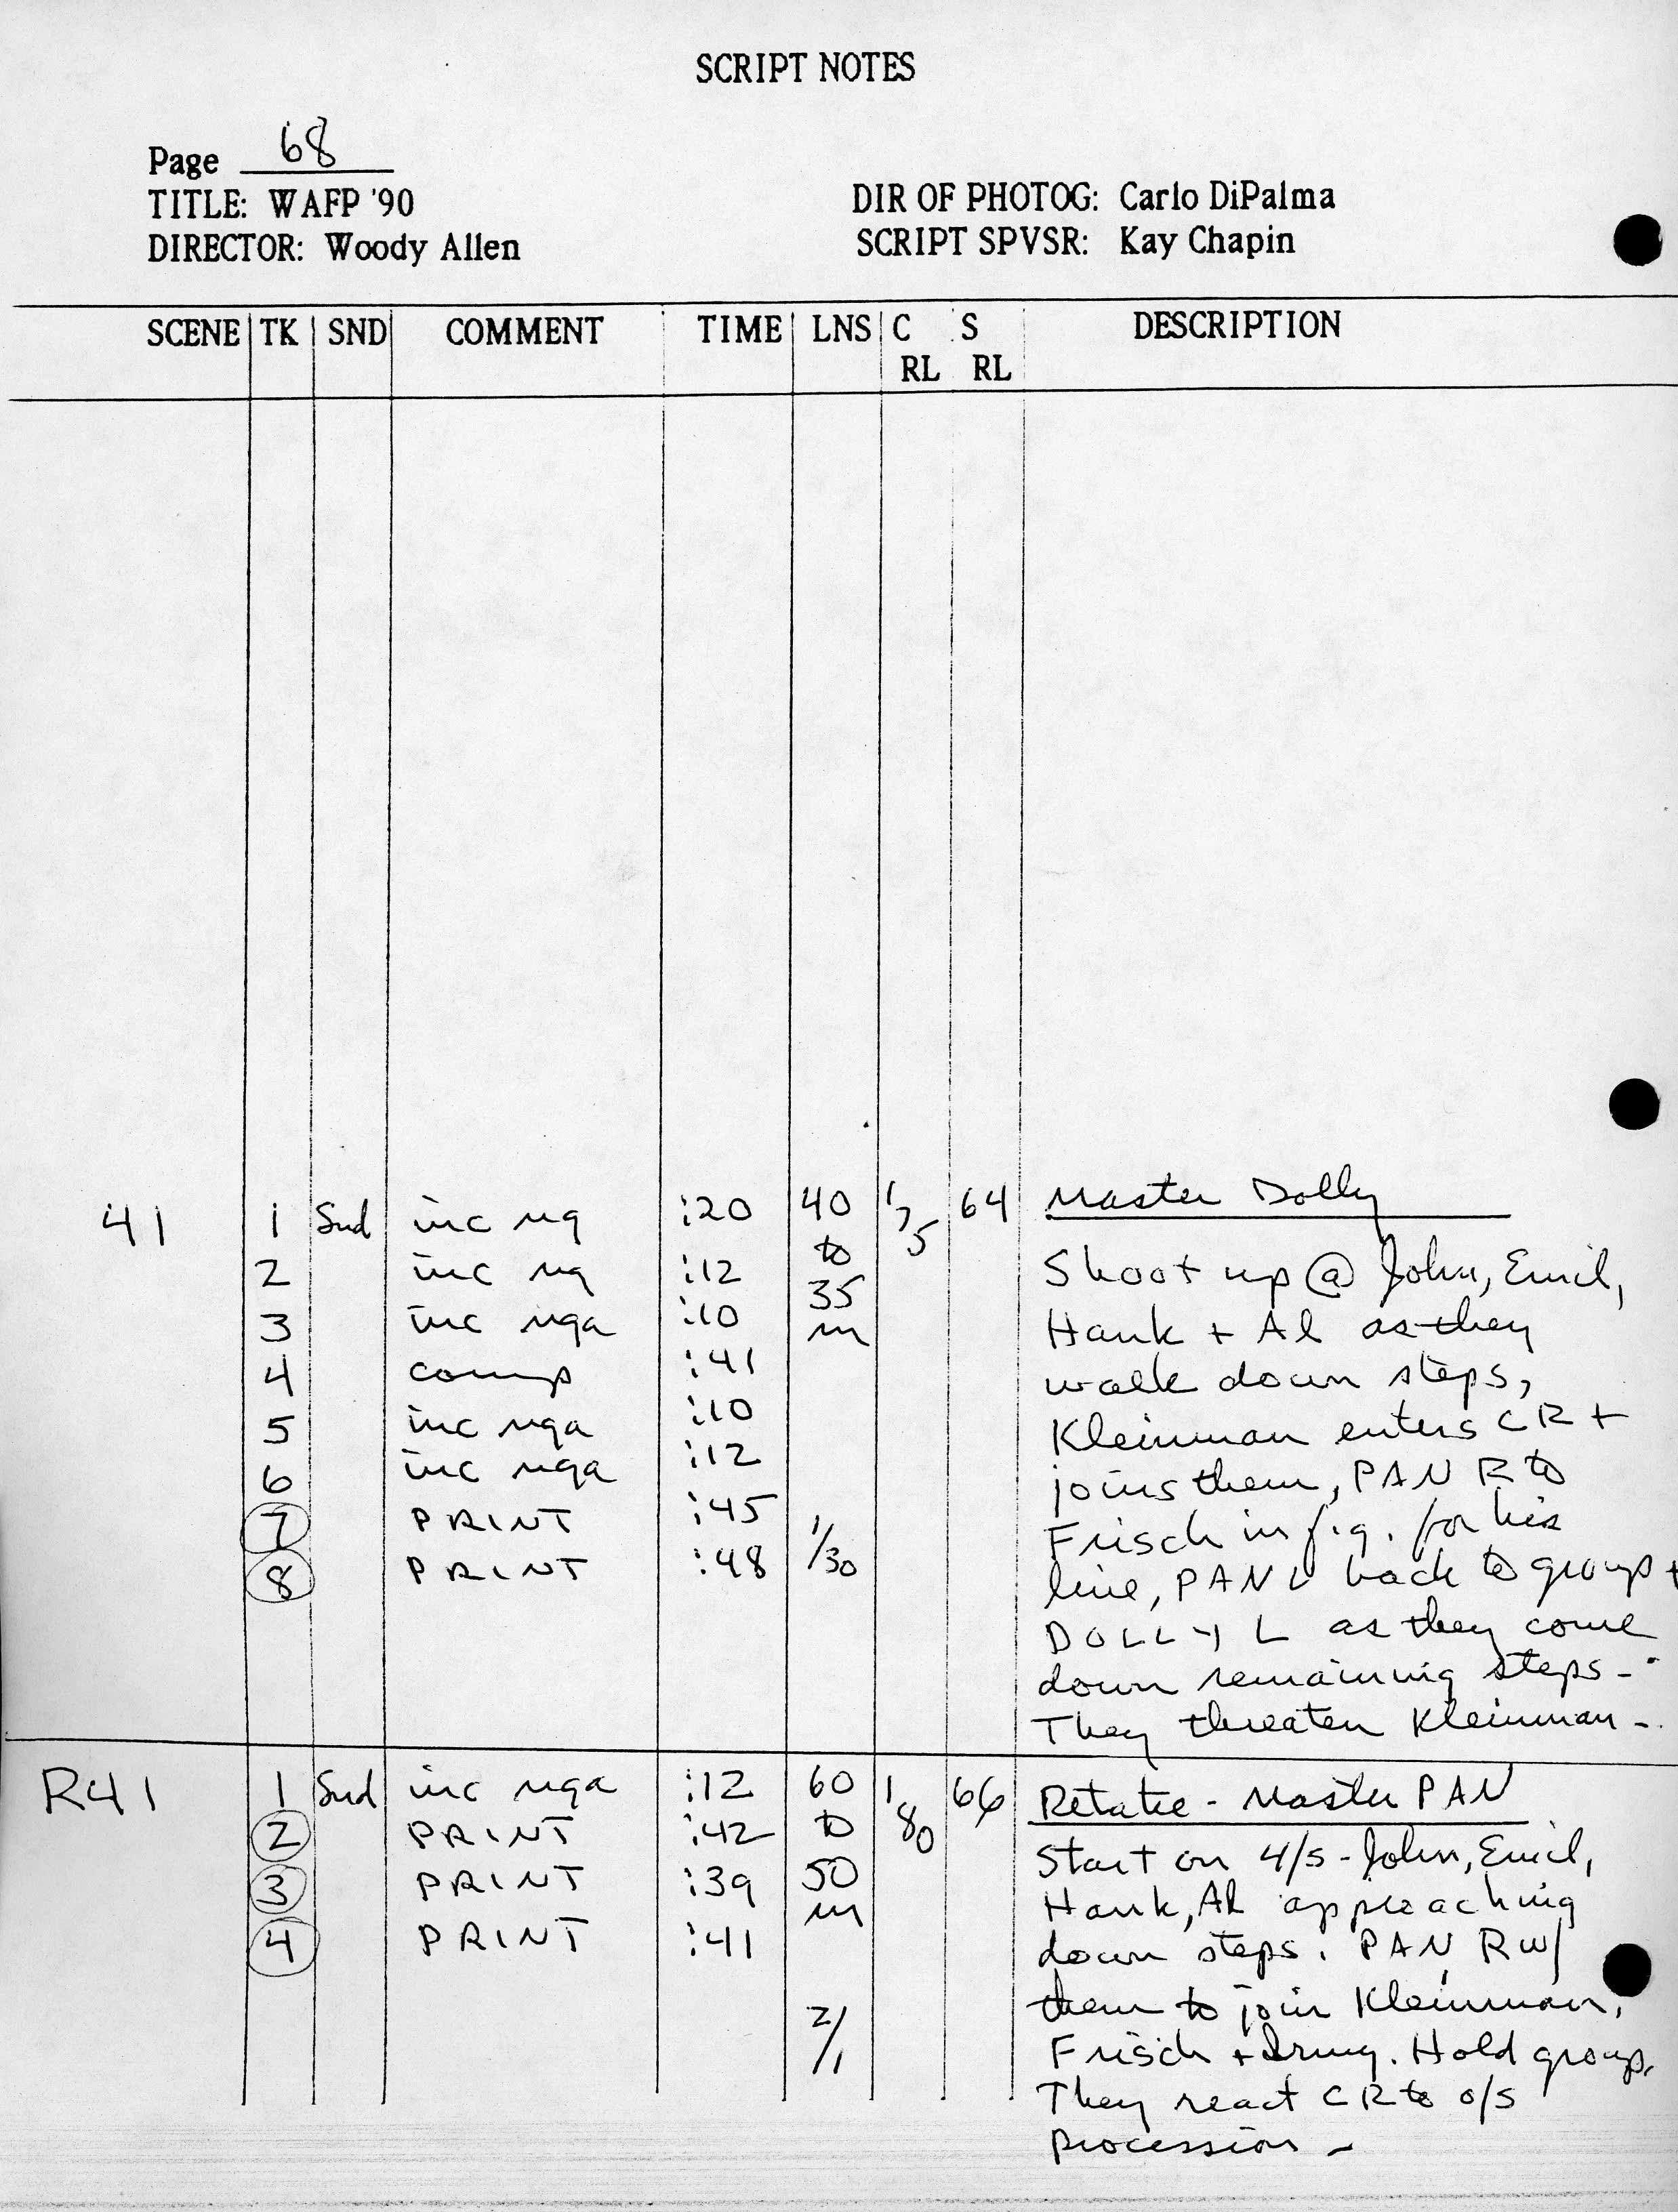 SCRIPT NOTES
Page 68
TITLE: WAFP '90
DIR OF PHOTOG: Carlo DiPalma
DIRECTOR: Woody Allen
SCRIPT SPVSR: Kay Chapin
SCENE TK SND COMMENT TIME LNS C RL S RL DESCRIPTION
41 1 Snd inc ng :20 40 1/75 64 Master Dolly
2 inc ng :12 to Shoot up @ John, Emil,
3 inc nga :10 35 Hank + Al as they
4 comp :41 m walk down steps,
5 inc nga :10 Kleinman enters CR +
6 inc nga :12 joins them, PAN R to
7 PRINT :45 Frisch in f.g. for his
8 PRINT :48 1/30 line, PAN L back to group +
DOLLY L as they come
down remaining steps -
They threaten Kleinman -
R41 1 Snd inc nga :12 60 1/80 66 Retake - Master PAN
2 PRINT :42 to Start on 4/s - John, Emil,
3 PRINT :39 50 m Hank, Al approaching
4 PRINT :41 down steps. PAN R w/
them to join Kleinman,
2/1 Frisch + Irving. Hold group.
They react CR to o/s
procession -